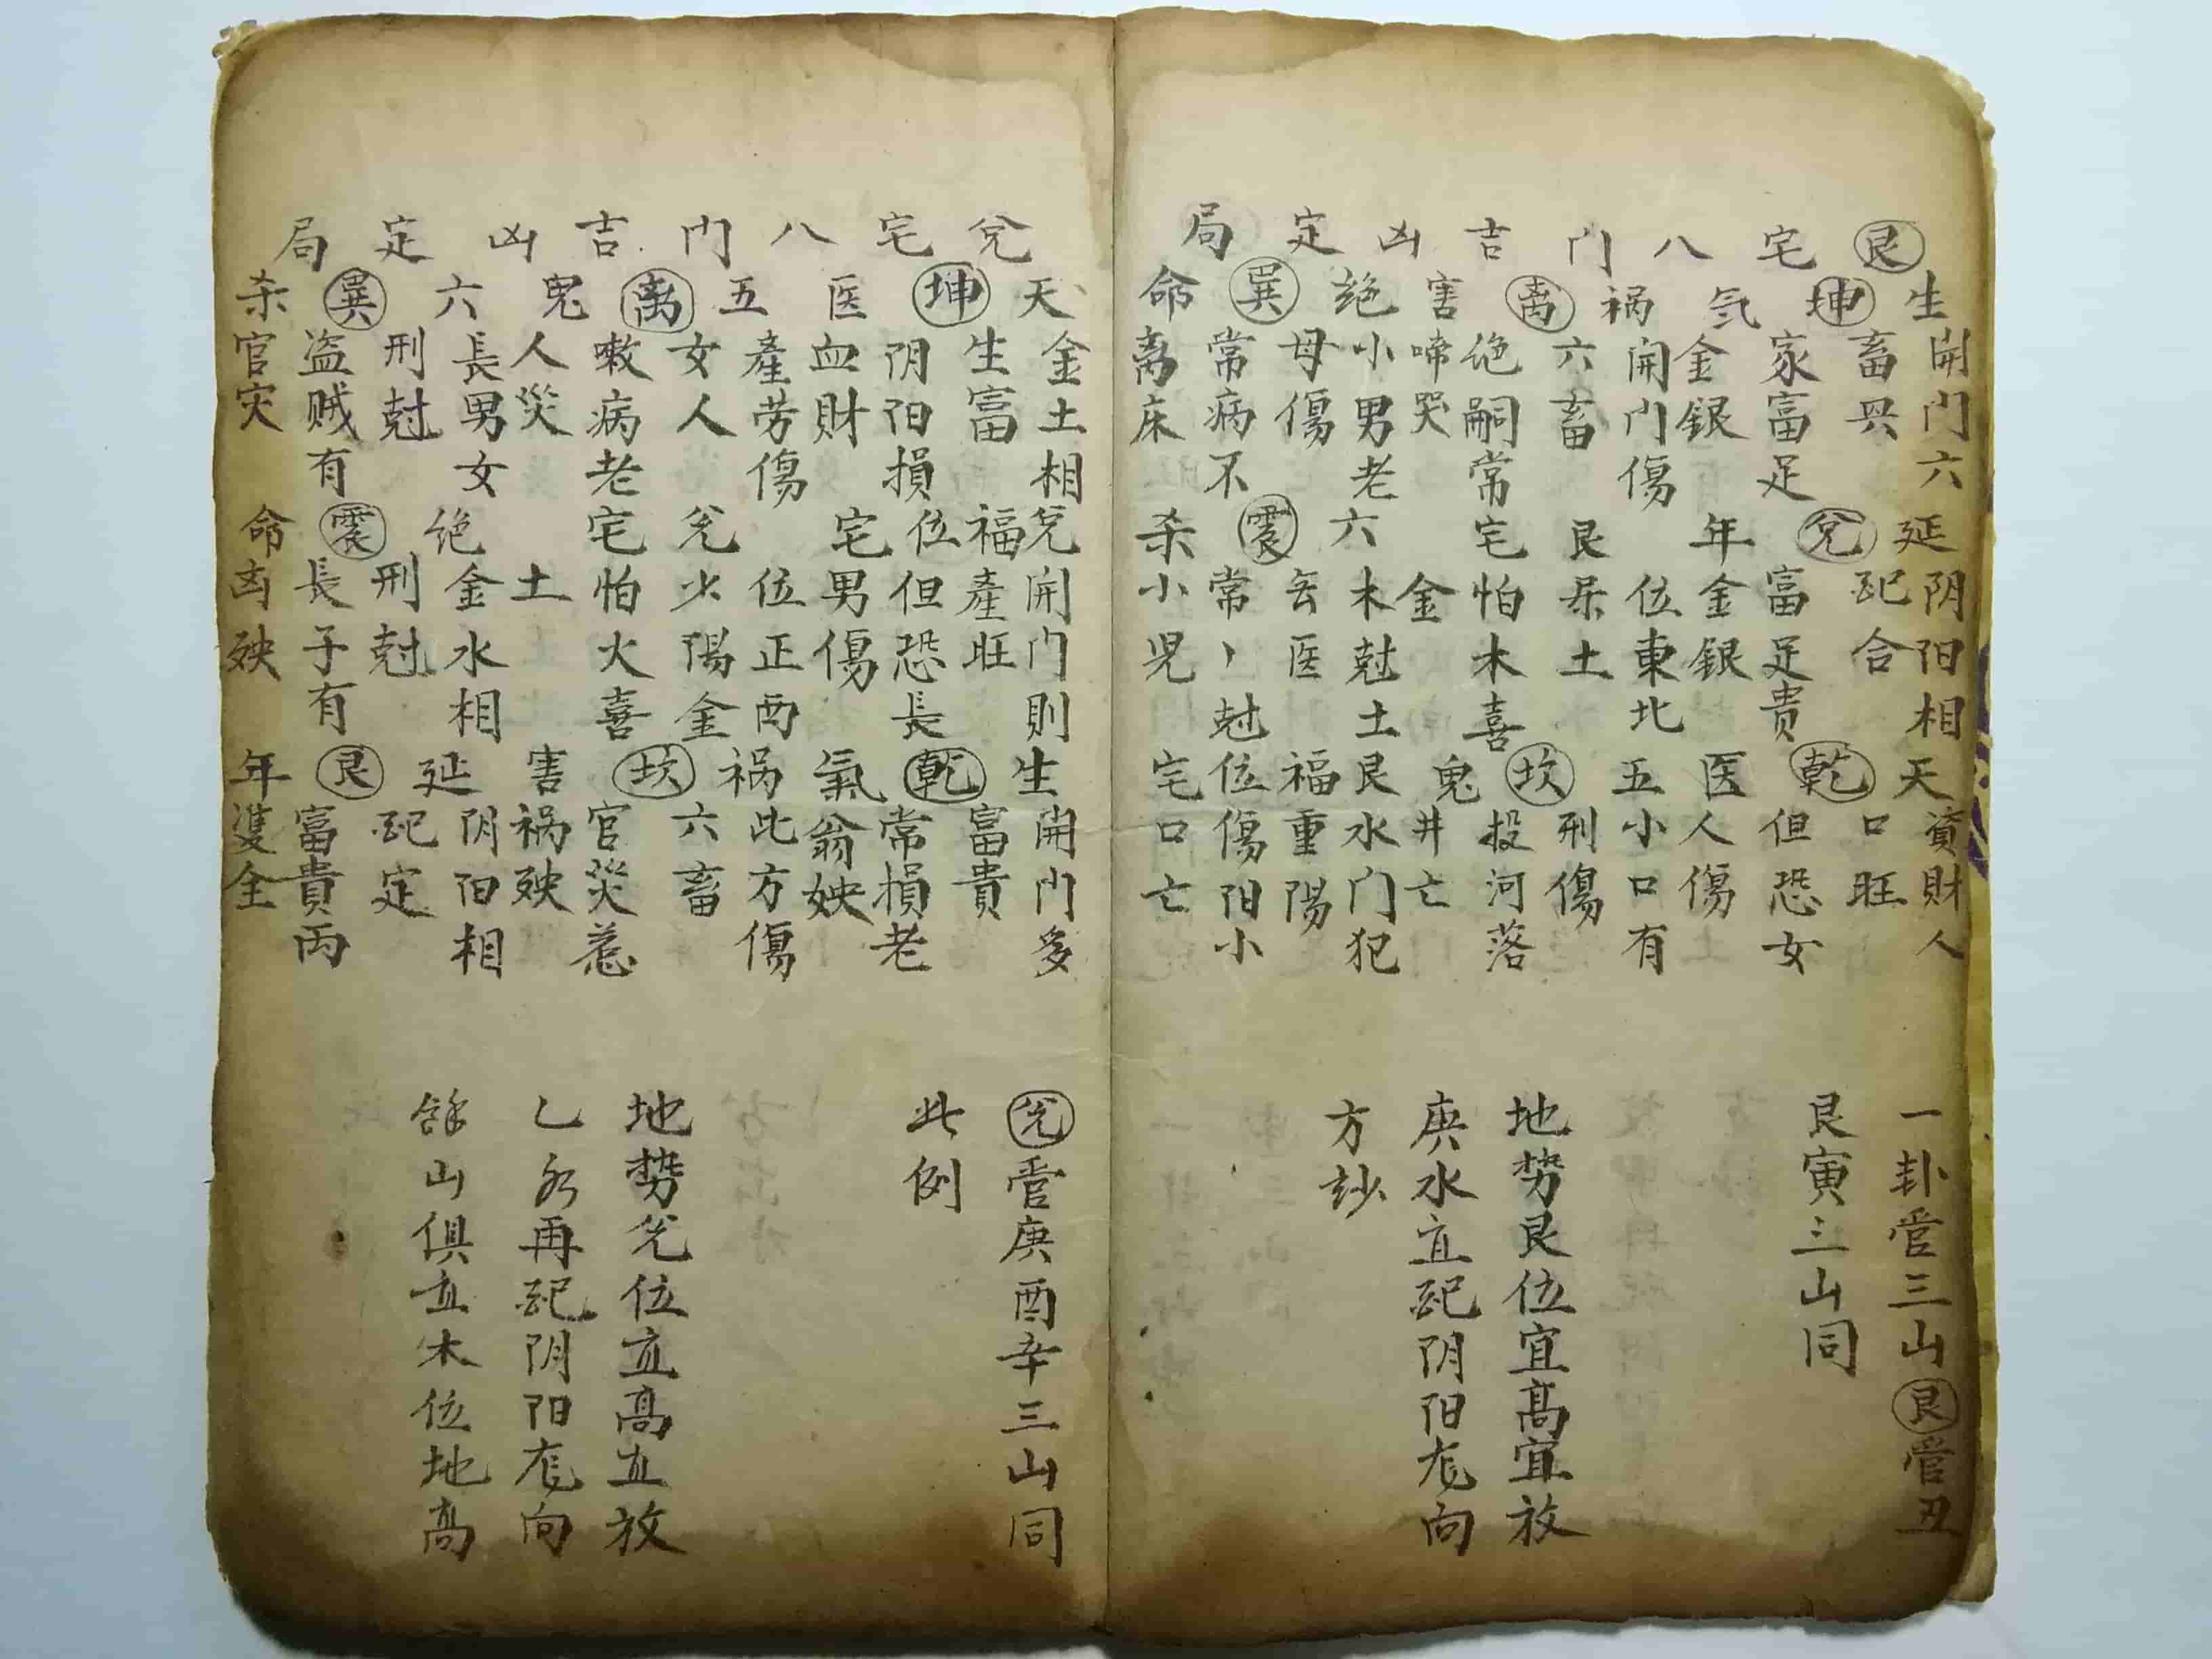 艮宅八门吉凶定局
生坤气祸离害绝巽命
開门六
畜兴
家富足
金銀
開门傷
六畜
绝嗣常
啼哭
小男老
母傷
常病不
离床
延兌年艮宅六震杀
阴阳相
配合
富足贵
金銀
位東北
土
怕木喜
金
木尅土
医
常〻尅
小児
天乾医五坎鬼艮福位宅
資財人
口旺
但恐女
人傷
小口有
刑傷
投河落
井亡
水门犯
重陽
傷阳小
口亡
一卦管三山艮管丑
艮寅三山同
地势艮位宜高宜放
庚水宜配阴阳龙向
方妙
兌宅八门吉凶定局
天坤医五离鬼六巽杀
金土相
生富
阴阳損
血財
產劳傷
女人
嗽病老
人災
長男女
刑尅
盗贼有
官灾
兌福位宅兌宅绝震命
開门則
產旺
但恐長
男傷
位正西
少陽金
怕火喜
土
金水相
刑尅
長子有
凶殃
生乾氣祸坎害延艮年
開门多
富貴
常損老
翁
此方傷
六畜
官災惹
祸殃
阴阳相
配定
富貴两
双全
兌管庚酉辛三山同
此例
地势兌位宜高宜放
乙水再配阴阳龙向
餘山俱宜本位地高